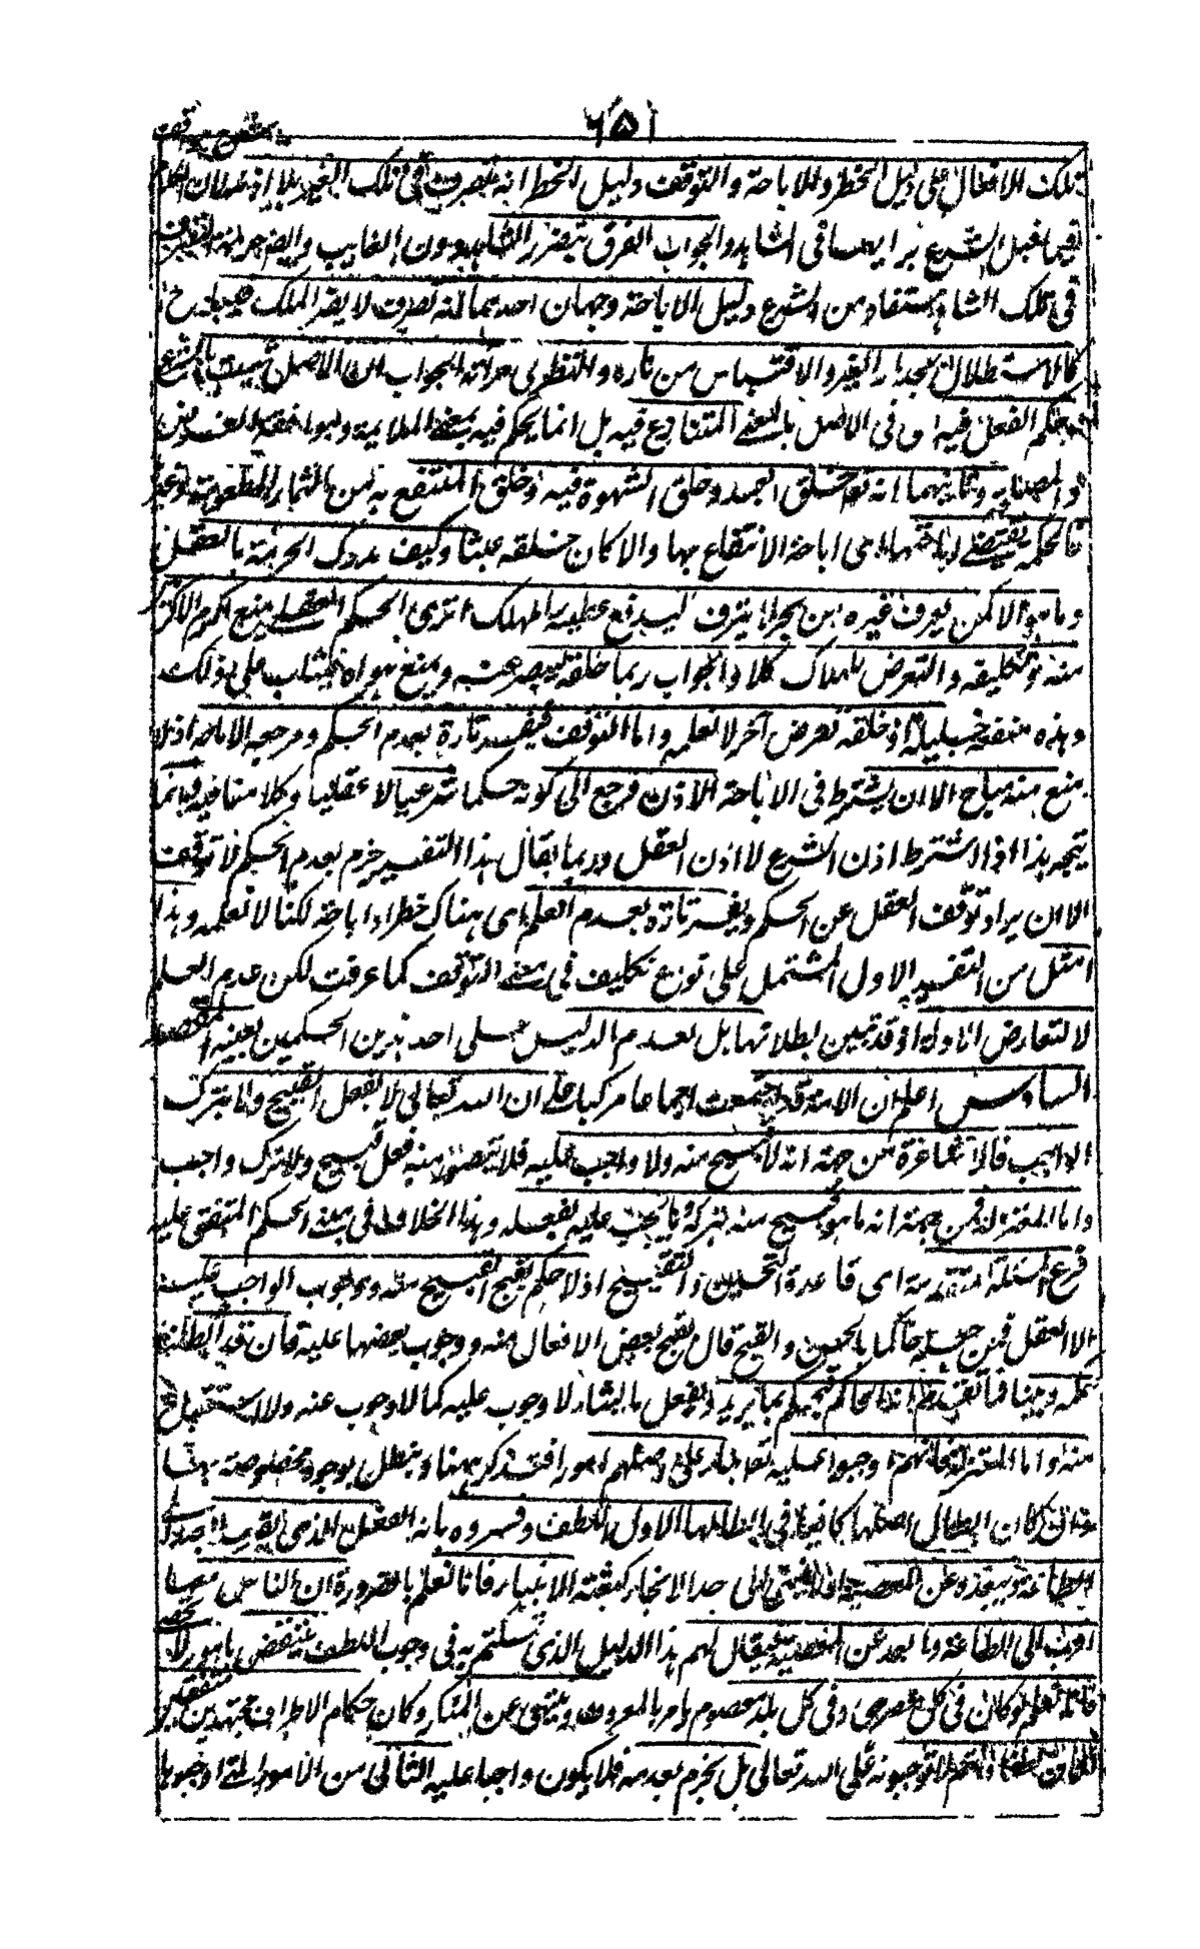 ٦٥١
شرح مواقف
تلك الافعال على دليل الحظر وللاباحة والتوقف دليل الحظر انه تصرف فى ملك الغير بلا اذنه لان الكلام
فيما قبل الشرع فيحرم كما فى الشاهد والجواب الفرق بتضرر الشاهد دون الغايب وايضا حرمة التصرف
فى ملك الشاهد مستفاد من الشرع دليل الاباحة وجهان احدهما انه تصرف لا يضر المالك فيباح
كالاستظلال بجدار الغير والاقتباس من ناره والنظر فى مرآته الجواب ان الاصل ثبت بالشرع
وحكم الفعل فيه اى فى الاصل بالمعنى المتنازع فيه بل انما يحكم فيه بمعنى الملايمة وموافقة الغرض
والمصلحة وثانيهما انه تعالى خلق العبد وخلق الشهوة فيه وخلق المنتفع به من الثمار المطعومة وغيرها
فالحكمة يقتضى اباحتها اى اباحة الانتفاع بها والا كان خلقه عبثا وكيف يدرك الحرمة بالعقل
وما هو الا كمن يعرف غيره من بحر لا ينزف ليدفع عطشه المهلك اترى الحكم العقلى منع اكرم الاكرمين
منه وتكليفه والتعرض للهلاك كلا والجواب ربما خلقه ليصبر عنه ويمنع هواه فيثاب على ذلك
وهذه منفعة جليلة او خلقه لغرض آخر لا نعلمه واما التوقف فيفسر تارة بعدم الحكم ومرجعه الاباحة اذ ما لا
منع منه مباح الا ان يشترط فى الاباحة الاذن فرجع الى كونه حكما شرعيا لا عقليا وكلامنا فيه فيه انما
يتجه هذا اذا اشترط اذن الشرع لا اذن العقل وربما يقال هذا التفسير جزم بعدم الحكم لا توقف
الا ان يراد توقف العقل عن الحكم ويفسر تارة بعدم العلم اى هناك حظر او اباحة لكنا لا نعلمه وهذا
امثل من التفسير الاول المشتمل على نوع تكليف فى معنى التوقف كما عرفت لكن عدم العلم
لا لتعارض الادلة اذ قد تبين بطلانها بل لعدم الدليل على احد هذين الحكمين بعينه المقصد
السادس اعلم ان الامة قد اجتمعت اجماعا مركبا على ان الله تعالى لا يفعل القبيح ولا يترك
الواجب فالاشاعرة من جهة انه لا قبيح منه ولا واجب عليه فلا يتصور منه فعل قبيح ولا ترك واجب
واما المعتزلة فمن جهة انه ما هو قبيح منه يتركه وما يجب عليه يفعله وهذا الخلاف فى مبنى الحكم المتفق عليه
فرع المسئلة المتقدمة اى قاعدة التحسين والتقبيح اذ لا حاكم بقبح القبيح منه ووجوب الواجب عليه
الا العقل فمن جعله حاكما بالحسن والقبح قال بقبح بعض الافعال منه ووجوب بعضها عليه ونحن قد ابطلنا
حكمه وبينا فيما تقدم انه الحاكم فيحكم بما يريد ويفعل ما يشاء لا وجوب عليه كما لا وجوب عنه ولا استقباح
منه واما المعتزلة فانهم اوجبوا عليه تعالى بناء على اصلهم امورا فنذكرها هنا ونبطل بوجوه مخصوصة بها
وان كان ابطال اصلها كافيا فى ابطالها الاول اللطف وفسروه بانه الفعل الذى يقرب العبد الى
الطاعة ويبعده عن المعصية لا الى حد الالجاء كبعثة الانبياء فانا نعلم بالضرورة ان الناس معها
اقرب الى الطاعة وابعد عن المعصية فيقال لهم هذا الدليل الذى تمسكتم به فى وجوب اللطف ينتقض بامور لا تحصى
فانا نعلم لو كان فى كل عصر نبى وفى كل بلد معصوم يامر بالمعروف وينهى عن المنكر وكان حكام الاطراف مجتهدين متقين
لكان لطفا وانتم لا توجبونه على الله تعالى بل نجزم بعدمه فلا يكون واجبا عليه الثانى من الامور التى اوجبوها